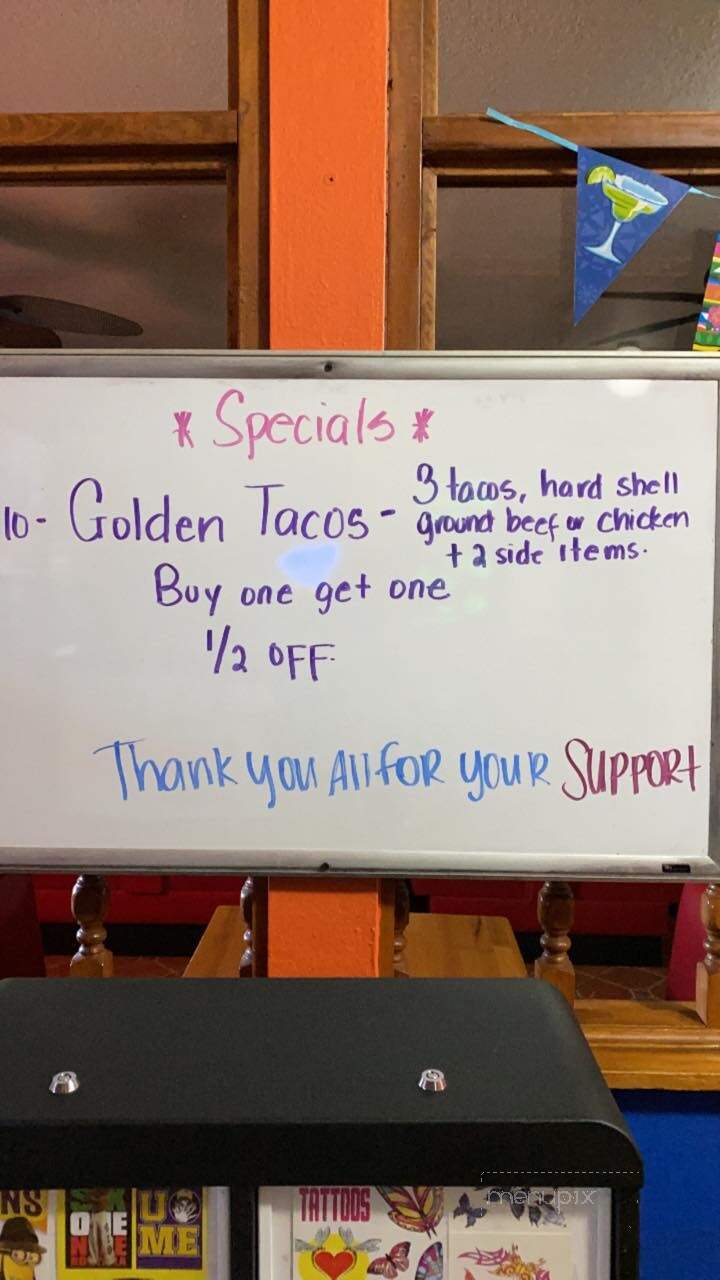 * Specials *
10- Golden Tacos - 3 tacos, hard shell
ground beef or chicken
+ 2 side items.
Buy one get one
1/2 OFF.
Thank you All for your Support
NS
ONE
U
ME
TATTOOS
menupix